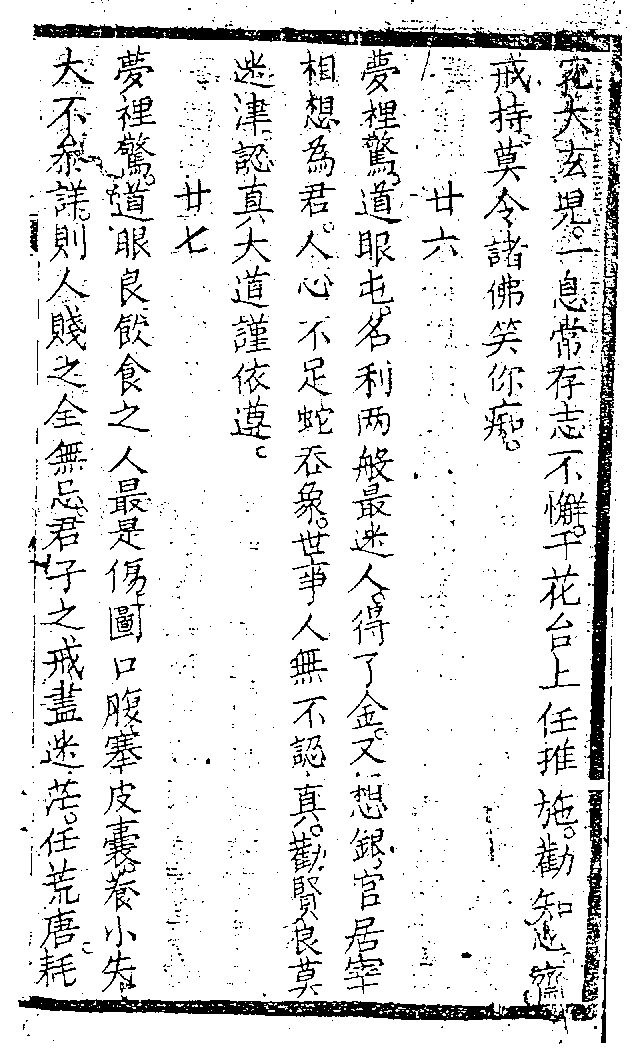 穵大玄晃。一息常存志不懈。千花台上任推施。勸知己齋
戒持。莫令諸佛笑你痴。
廿六
夢裡驚。道眼屯。名利两般最迷人。得了金。又想銀。官居宰
相想為君。人心不足蛇吞象。世事人無不認真。勸賢良莫
迷津。認真大道謹依遵。
廿七
夢裡驚。道眼良飲食之人最是傷圖口腹塞皮囊。養小失
大不叅詳。則人賤之全無忌。君子之戒盡迷茫。任荒唐。耗